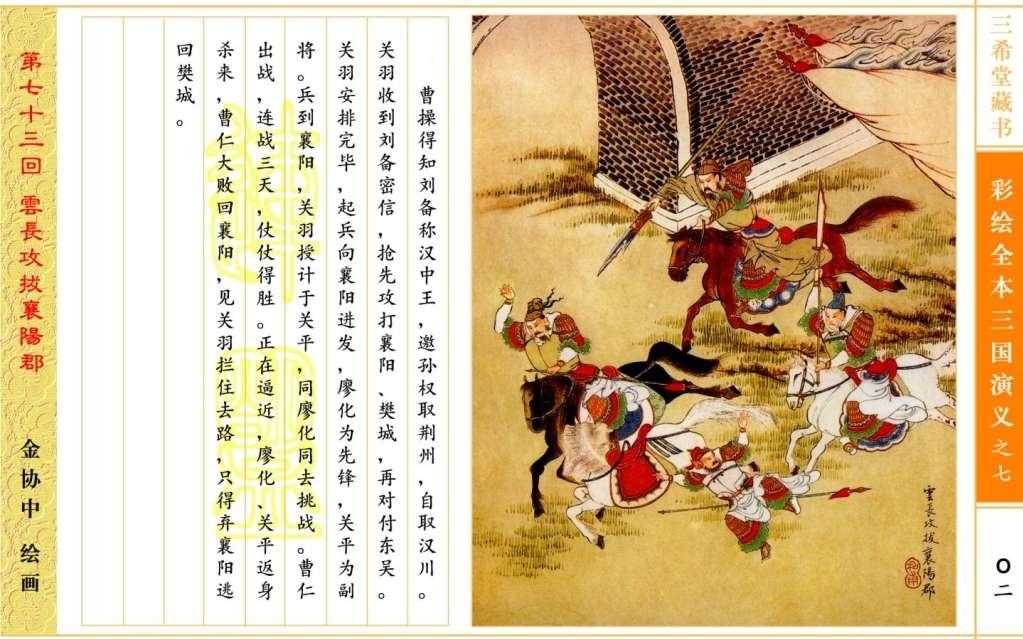 三希堂藏书
彩绘全本三国演义之七
〇二
雲長攻拔襄陽郡
曹操得知刘备称汉中王，邀孙权取荆州，自取汉川。
关羽收到刘备密信，抢先攻打襄阳、樊城，再对付东吴。
关羽安排完毕，起兵向襄阳进发，廖化为先锋，关平为副
将。兵到襄阳，关羽授计于关平，同廖化同去挑战。曹仁
出战，连战三天，仗仗得胜。正在逼近，廖化、关平返身
杀来，曹仁大败回襄阳，见关羽拦住去路，只得弃襄阳逃
回樊城。
第七十三回 雲長攻拔襄陽郡
金协中 绘画